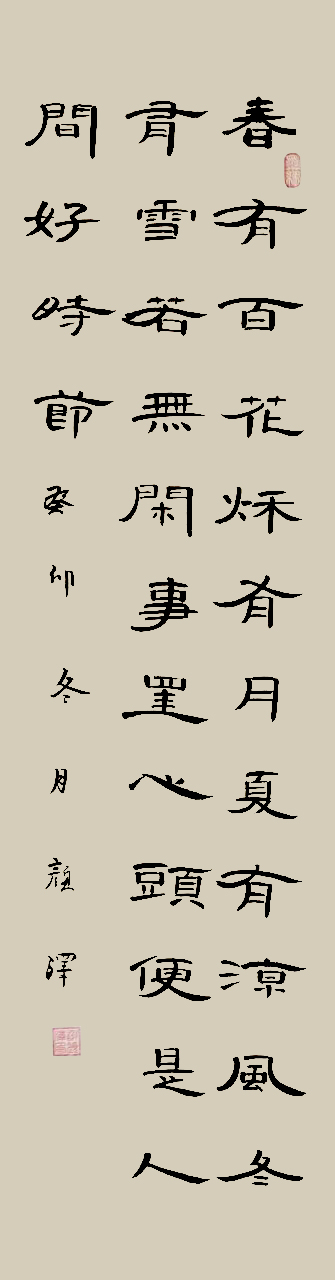 春有百花秋有月夏有涼風冬
有雪若無閑事罣心頭便是人
間好時節癸卯冬月顏澤